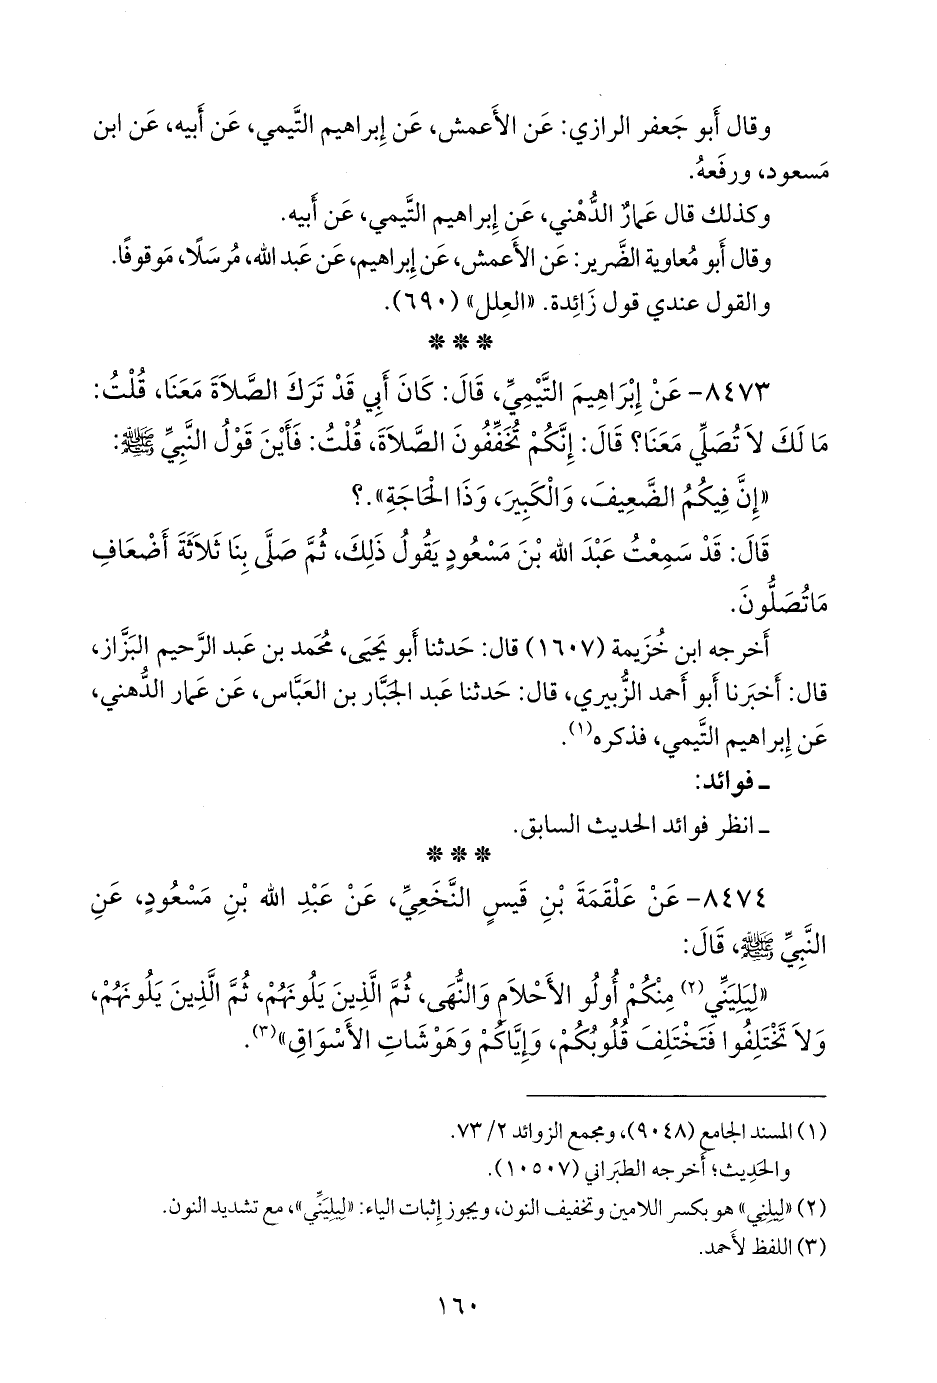 وقال أَبو جَعفر الرازي: عَن الأَعمش، عَن إِبراهيم التَّيمي، عَن أَبيه، عَن ابن
مَسعود، ورفَعهُ.
وكذلك قال عَمارٌ الدُّهْني، عَن إِبراهيم التَّيمي، عَن أَبيه.
وقال أَبو مُعاوية الضَّرير: عَن الأَعمش، عَن إِبراهيم، عَن عَبد الله، مُرسَلًا، مَوقوفًا.
والقول عندي قول زَائِدة. «العِلل» (٦٩٠).
❊ ❊ ❊
٨٤٧٣- عَنْ إِبْرَاهِيمَ التَّيْمِيِّ، قَالَ: كَانَ أَبِي قَدْ تَرَكَ الصَّلاَةَ مَعَنَا، قُلْتُ:
مَا لَكَ لاَ تُصَلِّي مَعَنَا؟ قَالَ: إِنَّكُمْ تُخَفِّفُونَ الصَّلاَةَ، قُلْتُ: فَأَيْنَ قَوْلُ النَّبِيِّ ﷺ:
«إِنَّ فِيكُمُ الضَّعِيفَ، وَالْكَبِيرَ، وَذَا الْحَاجَةِ».؟
قَالَ: قَدْ سَمِعْتُ عَبْدَ الله بْنَ مَسْعُودٍ يَقُولُ ذَلِكَ، ثُمَّ صَلَّى بِنَا ثَلاَثَةَ أَضْعَافِ
مَاتُصَلُّونَ.
أَخرجه ابن خُزَيمة (١٦٠٧) قال: حَدثنا أَبو يَحيَى، مُحَمد بن عَبد الرَّحيم البَزَّاز،
قال: أَخبَرنا أَبو أَحمد الزُّبيري، قال: حَدثنا عَبد الجَبَّار بن العَبَّاس، عَن عَمار الدُّهني،
عَن إِبراهيم التَّيمي، فذكره(١).
ـ فوائد:
ـ انظر فوائد الحديث السابق.
❊ ❊ ❊
٨٤٧٤- عَنْ عَلْقَمَةَ بْنِ قَيسٍ النَّخَعِيِّ، عَنْ عَبْدِ الله بْنِ مَسْعُودٍ، عَنِ
النَّبِيِّ ﷺ، قَالَ:
«لِيَلِيَنِّي(٢) مِنْكُمْ أُولُو الأَحْلاَمِ وَالنُّهَى، ثُمَّ الَّذِينَ يَلُونَهُمْ، ثُمَّ الَّذِينَ يَلُونَهُمْ،
وَلاَ تَخْتَلِفُوا فَتَخْتَلِفَ قُلُوبُكُمْ، وَإِيَّاكُمْ وَهَوْشَاتِ الأَسْوَاقِ»(٣).
(١) المسند الجامع (٩٠٤٨)، ومجمع الزوائد ٢/ ٧٣.
والحَدِيث؛ أَخرجه الطبَراني (١٠٥٠٧).
(٢) «لِيلِنِي» هو بكسر اللامين وتخفيف النون، ويجوز إِثبات الياء: «لِيَلِيَنِّي»، مع تشديد النون.
(٣) اللفظ لأَحمد.
١٦٠